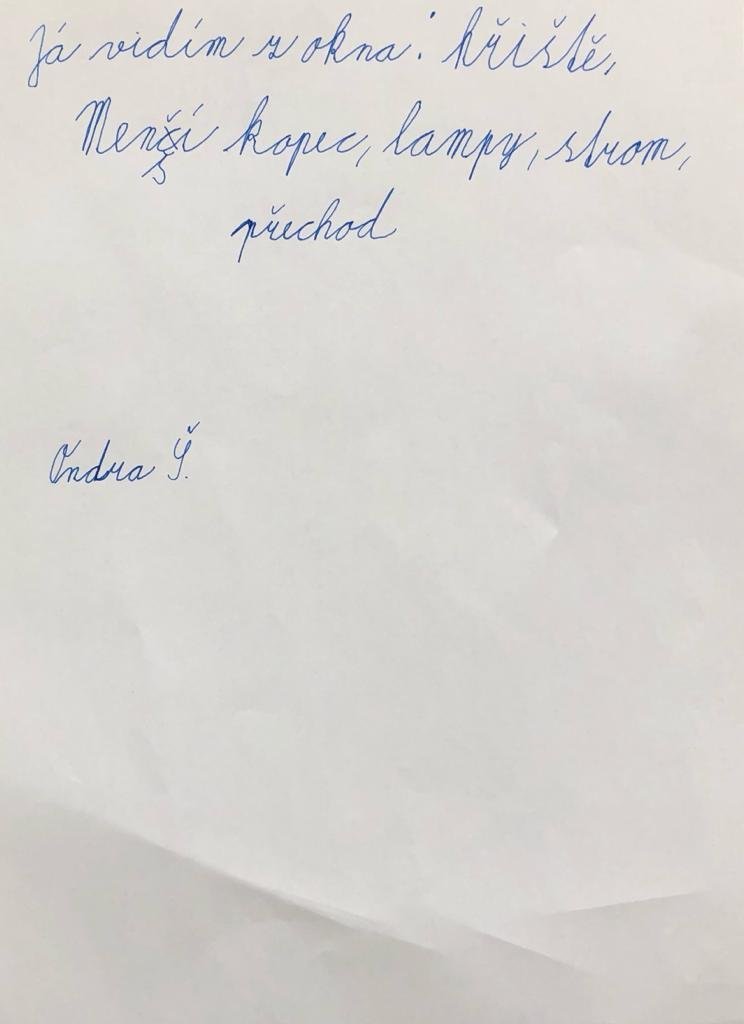 Já vidím z okna: hřiště,
Menší kopec, lampy, strom,
přechod
Ondra Š.